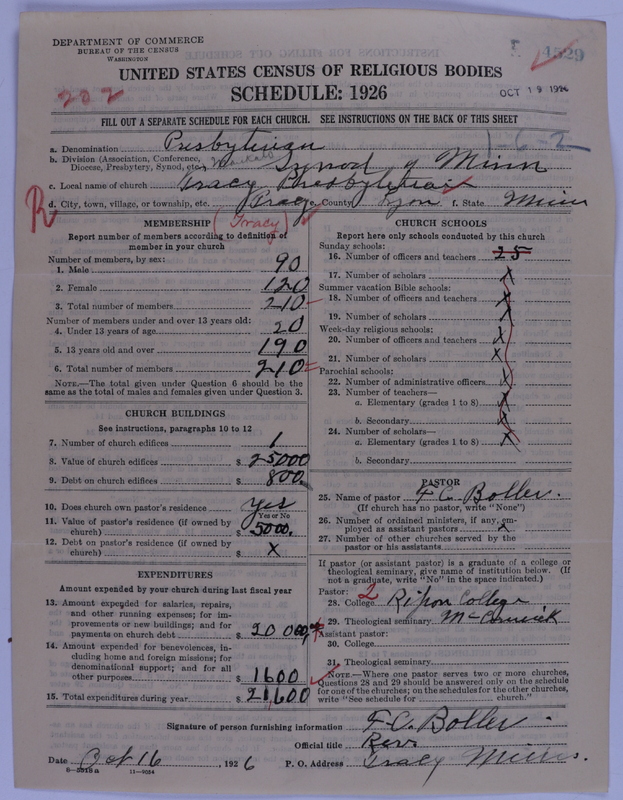 DEPARTMENT OF COMMERCE
BUREAU OF THE CENSUS
WASHINGTON
4529
UNITED STATES CENSUS OF RELIGIOUS BODIES
202
SCHEDULE: 1926
OCT 19 1926
FILL OUT A SEPARATE SCHEDULE FOR EACH CHURCH. SEE INSTRUCTIONS ON THE BACK OF THIS SHEET
1-6-2
a. Denomination Presbyterian
b. Division (Association, Conference, Diocese, Presbytery, Synod, etc.) Mankato Synod of Minn
c. Local name of church Tracy Presbyterian
d. City, town, village, or township, etc. Tracy e. County Lyon f. State Minn
R
MEMBERSHIP (Tracy)
Report number of members according to definition of
member in your church
Number of members, by sex:
1. Male 90
2. Female 120
3. Total number of members 210
Number of members under and over 13 years old:
4. Under 13 years of age 20
5. 13 years old and over 190
6. Total number of members 210
NOTE.—The total given under Question 6 should be the
same as the total of males and females given under Question 3.
CHURCH BUILDINGS
See instructions, paragraphs 10 to 12
7. Number of church edifices 1
8. Value of church edifices $ 25000
9. Debt on church edifices $ 800.
10. Does church own pastor's residence yes
Yes or No
11. Value of pastor's residence (if owned by
church) $ 5000.
12. Debt on pastor's residence (if owned by
church) $ X
EXPENDITURES
Amount expended by your church during last fiscal year
13. Amount expended for salaries, repairs,
and other running expenses; for im-
provements or new buildings; and for
payments on church debt $ 20000
14. Amount expended for benevolences, in-
cluding home and foreign missions; for
denominational support; and for all
other purposes $ 1600
15. Total expenditures during year $ 21,600
CHURCH SCHOOLS
Report here only schools conducted by this church
Sunday schools:
16. Number of officers and teachers 25
17. Number of scholars X
Summer vacation Bible schools:
18. Number of officers and teachers X
19. Number of scholars X
Week-day religious schools:
20. Number of officers and teachers X
21. Number of scholars X
Parochial schools:
22. Number of administrative officers X
23. Number of teachers—
a. Elementary (grades 1 to 8) X
b. Secondary X
24. Number of scholars—
a. Elementary (grades 1 to 8) X
b. Secondary
PASTOR
25. Name of pastor F C Boller.
(If church has no pastor, write "None")
26. Number of ordained ministers, if any, em-
ployed as assistant pastors X
27. Number of other churches served by the
pastor or his assistants
If pastor (or assistant pastor) is a graduate of a college or
theological seminary, give name of institution below. (If
not a graduate, write "No" in the space indicated.)
Pastor: 2
28. College Ripon College
29. Theological seminary McCormick
Assistant pastor:
30. College
31. Theological seminary
NOTE.—Where one pastor serves two or more churches,
Questions 28 and 29 should be answered only on the schedule
for one of the churches; on the schedules for the other churches,
write "See schedule for church."
Signature of person furnishing information F. C. Boller.
Official title Rev.
Date Oct 16, 1926 P. O. Address Tracy Minn.
8-5518a 11-9054